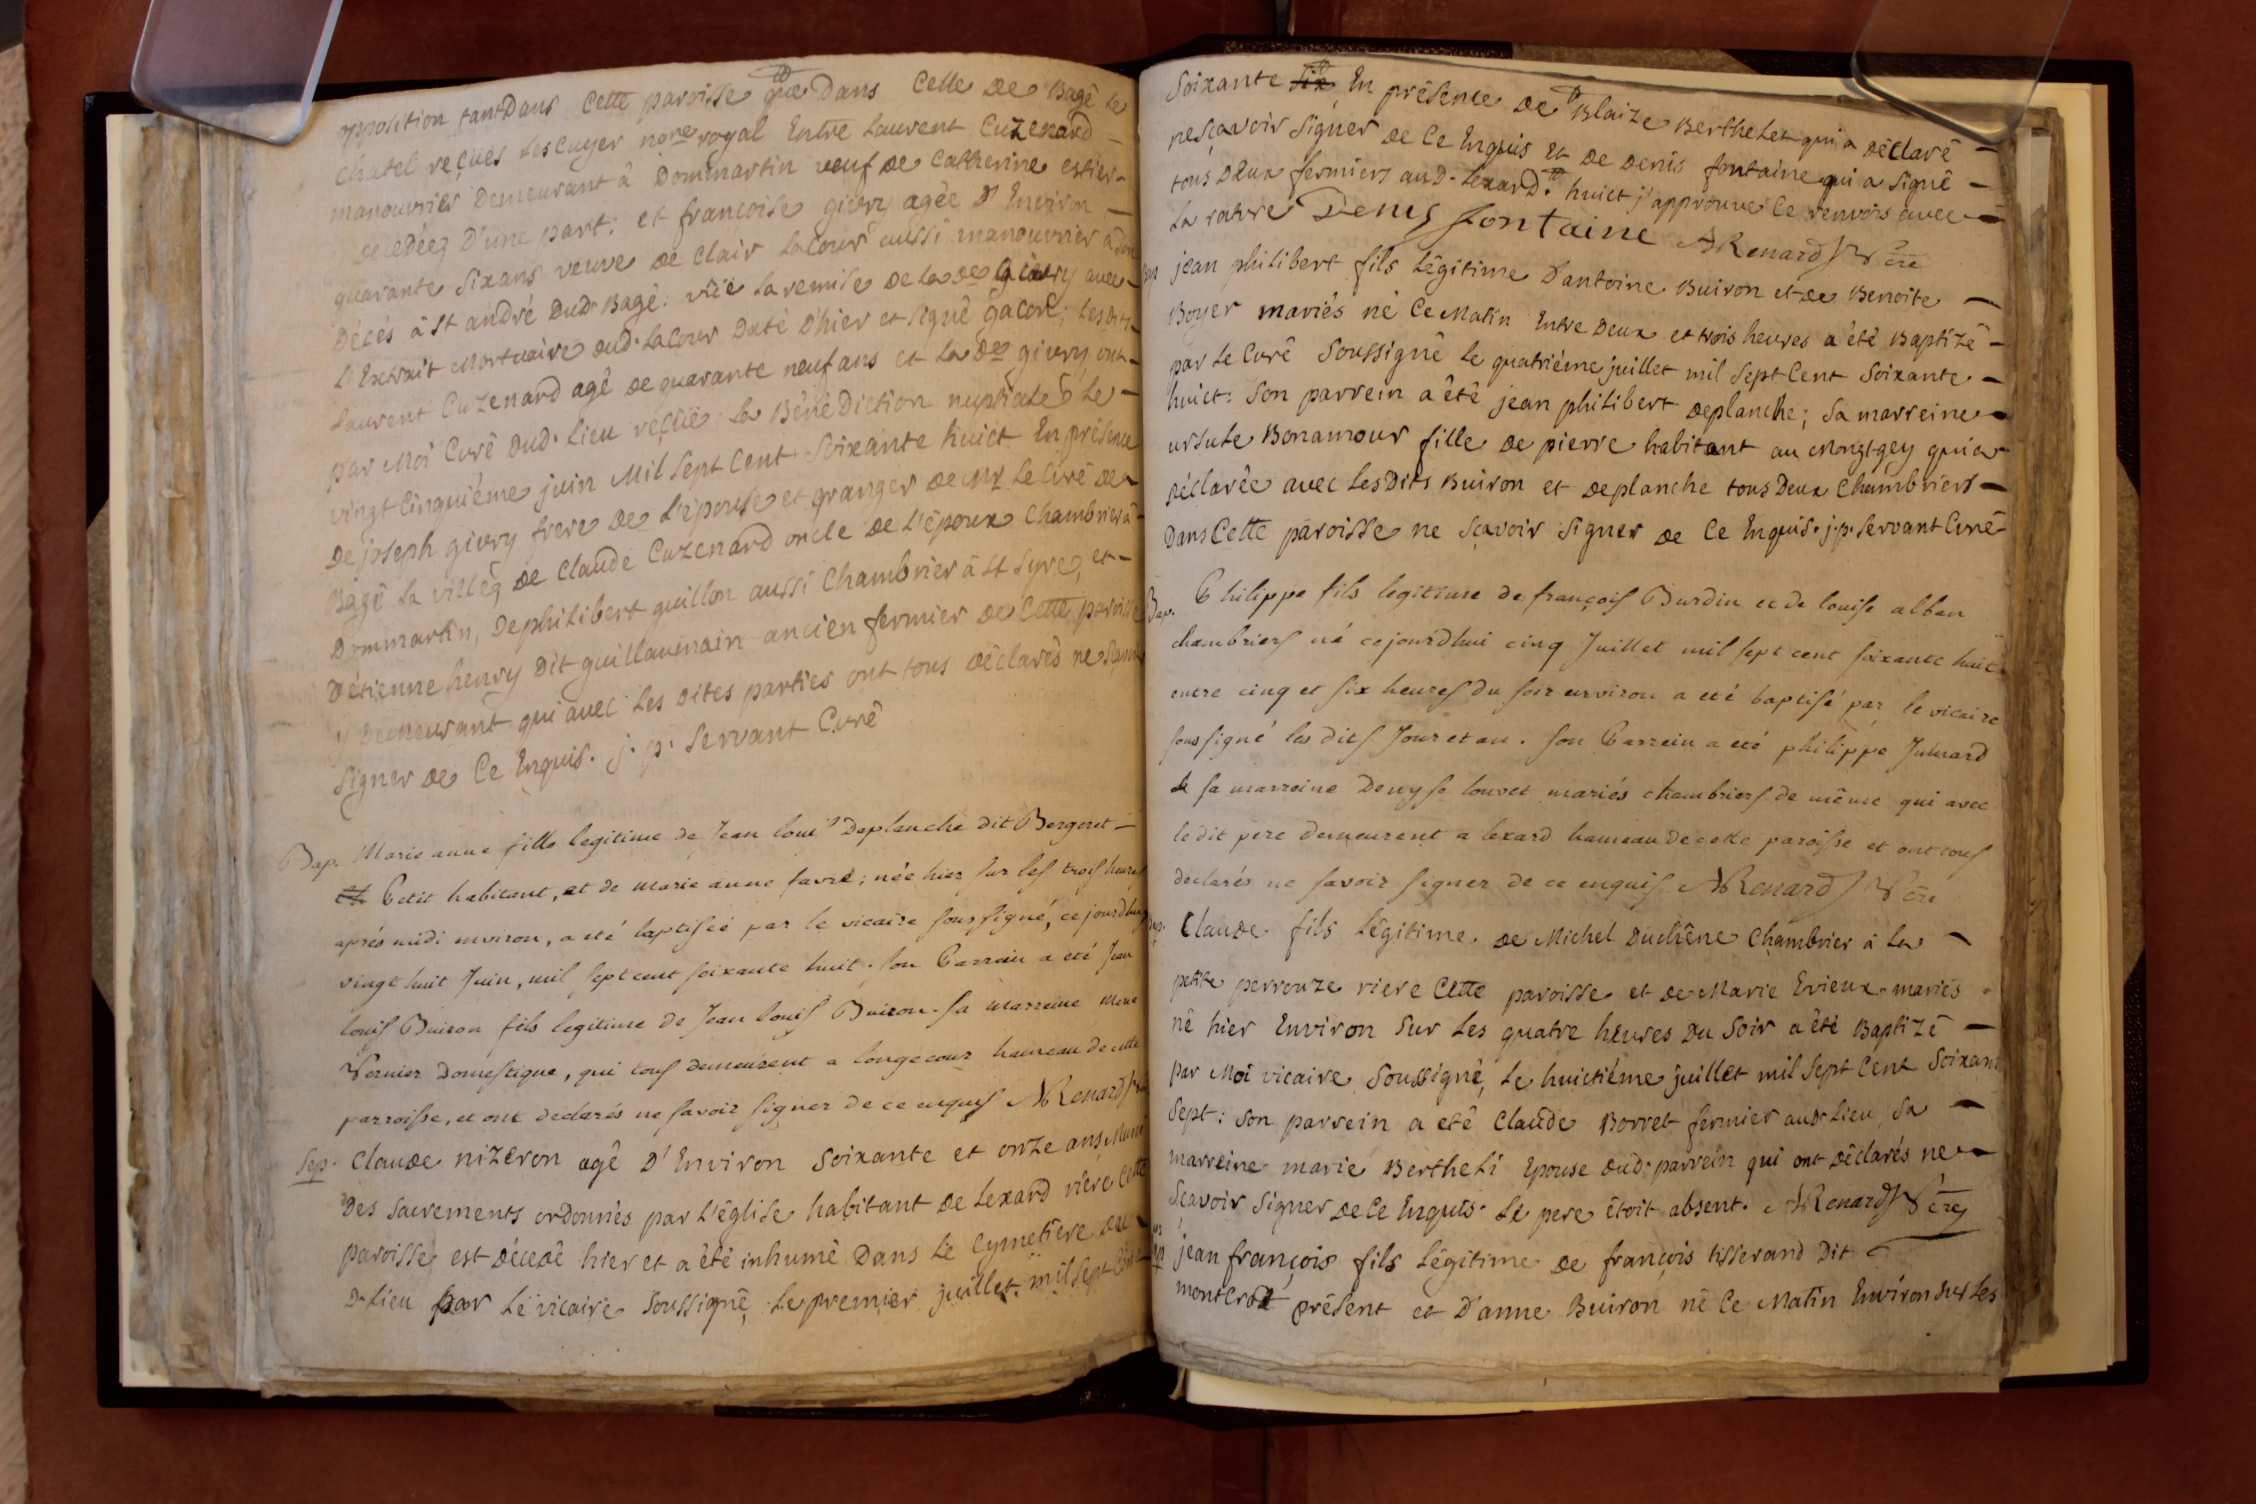 opposition tant Dans Cette paroisse que Dans Celle de Bagé le
chatel reçües Lescuyer nore royal Entre Laurent Cuzenard
manouvrier Demeurant à Dommartin veuf de Catherine estier
decedéeg D'une part: et francoise givry agée D'Environ
quarante six ans veuve de Clair Lacour aussi manouvrier
Décés à st andré Dud. Bagé: vüe la remise De la de Givry avec
L'Extrait Mortuaire dud. Lacour Daté D'hier et signé gacon; Lesdits
Laurent Cuzenard agé de quarante neuf ans et la de givry ont
par Moi Curé Dud. Lieu reçüe La Bénédiction nuptiale Le
vingt Cinquiéme juin Mil sept Cent Soixante huict En présence
De joseph givry frere de L'épouse et granger de Mr le Curé de
Bagé la villeg de Claude Cuzenard oncle de L'époux Chambrier à
Dommartin, De philibert guillon aussi Chambrier à st Syre, et
D'étienne henry Dit guillaumain ancien fermier de Cette paroisse
y Demeurant qui avec Les Dites parties ont tous déclarés ne Sçavoir
Signer de Ce Enquis. j. p. Servant Curé
Bap. Marie anne fille legitime de Jean louis Deplanche dit Bergeret
Petit habitant, et de marie anne favre; née hier sur les trois heures
aprés midi environ, a eté baptisée par le vicaire soussigné, ce jourdhuy
vingt huit Juin, mil sept cent soixante huit. son Parrein a été Jean
louis Buiron fils legitime de Jean louis Buiron. sa marreine
Vernier Domestique, qui tous demeurent a longecour hameau de cette
parroisse, et ont declarés ne savoir signer de ce enquis ARenard
Sep. Claude nizeron agé D'Environ Soixante et onze ans Muni
Des Sacrements ordonnés par L'église habitant de Lexard riere Cette
paroisse est décedé hier et a été inhumé Dans Le Cymetiere du
D. Lieu par Le vicaire Soussigné, Le premier juillet mil Sept Cent
Soixante six En présence de Blaize Berthelet qui a déclaré
ne sçavoir signer de Ce Enquis Et de Denis fontaine qui a signé
tous deux fermiers aud. Lexard. huict j'approuve Ce renvois avec
La rature Denis fontaine ARenard Vcre
Jean philibert fils Légitime D'antoine Buiron et de Benoite
Boyer mariés né Ce Matin Entre Deux et trois heures a été Baptizé
par Le Curé Soussigné le quatriéme juillet mil Sept Cent Soixante
huict: Son parrein a été jean philibert deplanche; Sa marreine
ursule Bonamour fille de pierre habitant au Mongt-gey qui a
déclarée avec Lesdits Buiron et deplanche tous Deux Chambriers
Dans Cette paroisse ne Sçavoir Signer de Ce Enquis. j. p. Servant Curé
Bap. Philippe fils legitime de françois Burdin et de louise alban
chambriers né cejourdhui cinq Juillet mil sept cent soixante huit
entre cinq et six heures du soir environ a eté baptisé par le vicaire
sous signé les dits Jour et an. son Parrein a eté philippe Juhard
sa marreine Denyse louvet mariés chambriers de même qui avec
le dit pere demeurent a lexard hameau de cette paroisse et ont tous
déclarés ne savoir signer de ce enquis ARenard Vcre
Bap. Claude fils Légitime de Michel Duchêne Chambrier à la
petite perrouze riere Cette paroisse et de Marie Evieux mariés
né hier Environ Sur Les quatre heures Du Soir a été Baptizé
par Moi vicaire Soussigné, Le huictiéme juillet mil Sept Cent Soixante
Sept: Son parrein a eté Claude Borret fermier aud. Lieu, Sa
marreine marie Bertheli Epouse dud. parrein qui ont déclarés ne
Sçavoir Signer de Ce Enquis. Le pere étoit absent. ARenard Vcre
jean françois fils Légitime de françois tisserand Dit
montcrot présent et D'anne Buiron né Ce Matin Environ sur Les